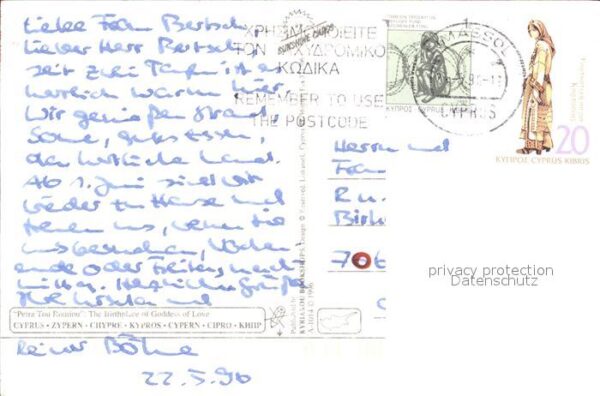 Liebe Frau Bertsch,
lieber Herr Bertsch,
seit zwei Tagen ist es
herrlich warm hier.
Wir genießen Strand,
Sonne, gutes Essen,
das herrliche Land.
Ab 1. Juni sind wir
wieder zu Hause und
freuen uns, wenn Sie
uns besuchen, Wochen-
ende oder Freitag nach-
mittag. Herzliche Grüße
Ihre Ursula und
Reiner
22.5.96
"Petra Tou Romiou": The Birthplace of Goddess of Love
CYPRUS • ZYPERN • CHYPRE • KYPROS • CYPERN • CIPRO • КИПР
ΧΡΗΣΙΜΟΠΟΙΕΙΤΕ
ΤΟΝ ΤΑΧΥΔΡΟΜΙΚΟ
ΚΩΔΙΚΑ
REMEMBER TO USE
THE POSTCODE
LIMASSOL
CYPRUS
ΚΥΠΡΟΣ CYPRUS KIBRIS
20
ΚΥΠΡΟΣ CYPRUS KIBRIS
Herrn und
Frau
Birk
706
privacy protection
Datenschutz
A-1014 © 1996